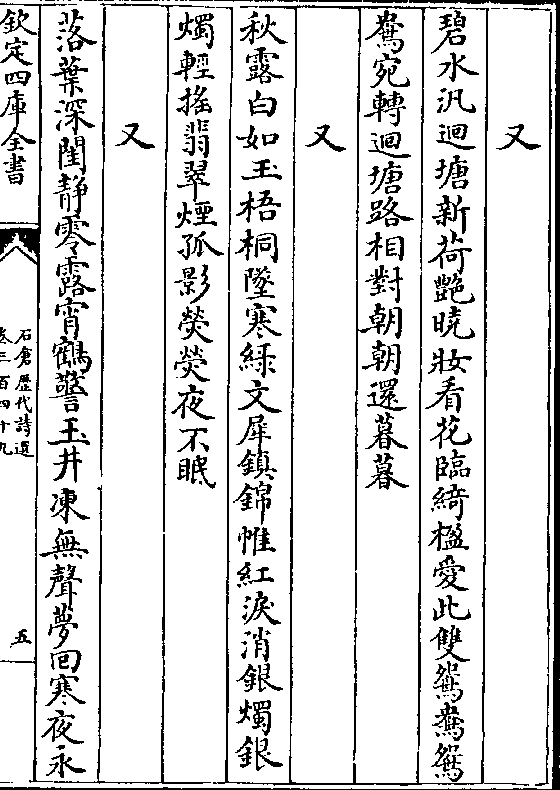 又
碧水汎迴塘新荷艷曉妝看花臨綺楹愛此雙鴛鴦鴛
鴦宛轉迴塘路相對朝朝還暮暮
又
秋露白如玉梧桐墜寒綠文犀鎮錦帷紅淚消銀燭銀
燭輕搖翡翠煙孤影熒熒夜不眠
又
落葉深閨靜零露宵鶴警玉井凍無聲夢回寒夜永
欽定四庫全書
石倉歷代詩選
卷三百四十九
五